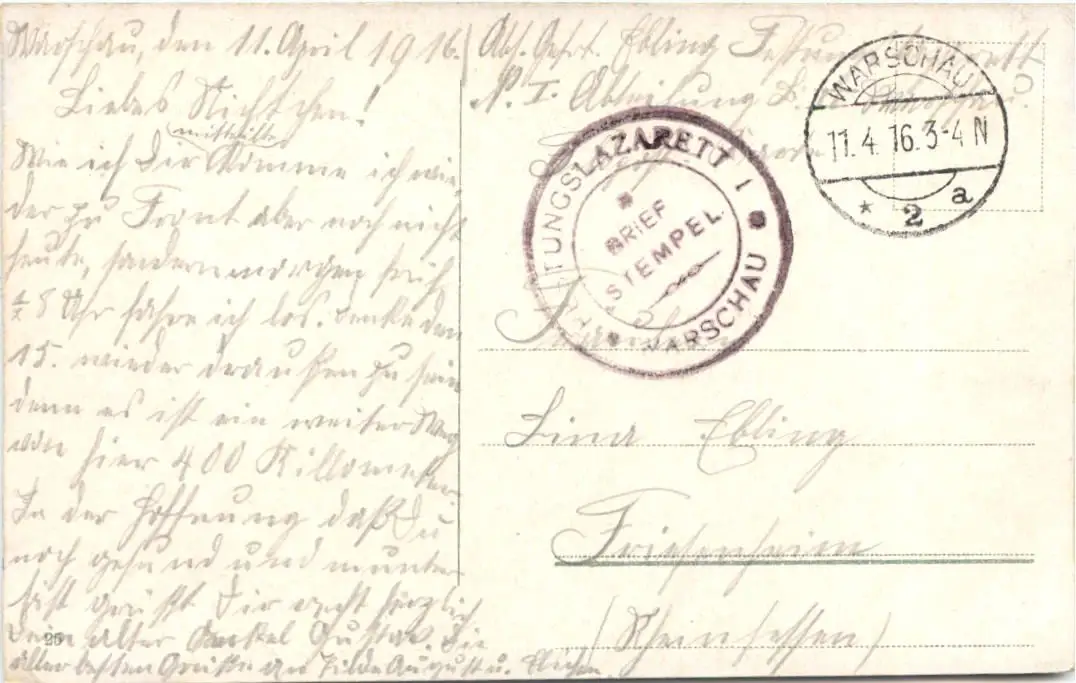 Warschau, den 11. April 1916.
Liebes Nichtchen!
mitteilte
Wie ich Dir komme ich wie-
der zu Front aber noch nicht
heute, sondern morgen früh
8 Uhr fahre ich los. denke den
15. wieder draußen zu sein
denn es ist ein weiter Weg
von hier 400 Killometer
In der Hoffnung daß Du
noch gesund und munter
bist grüßt Dir recht herzlich
Dein alter Onkel Gustav. Die
allerbesten Grüße an Tilde August u.
26
Abs. Gefr. Ebling
N. I. Abteilung
WARSCHAU
11.4.16.3-4 N
* 2 a
FESTUNGSLAZARETT I
WARSCHAU
BRIEF
STEMPEL
Fräulein
Lina Ebling
Friesenheim
(Rheinhessen)